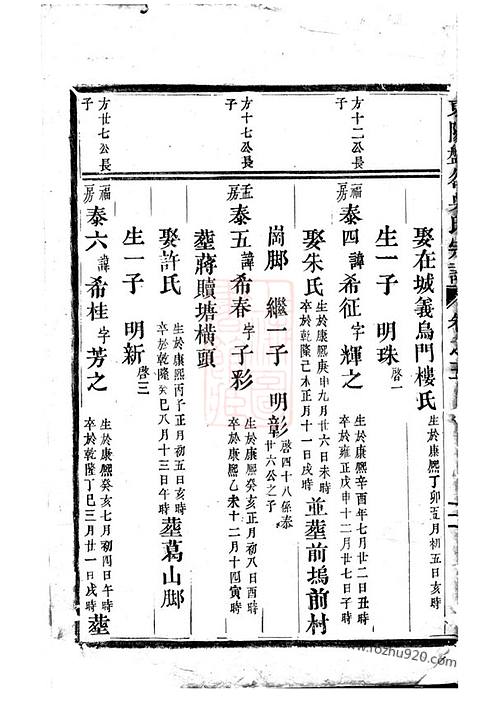 娶在城義烏門樓氏 生於康熙丁卯五月初五日亥時
生一子 明珠 啓一
方十二公長子
福房 泰四 諱希征字輝之 生於康熙辛酉年七月廿二日丑時 卒於雍正戊申十二月廿七日子時
娶朱氏 生於康熙庚申九月廿六日未時 卒於乾隆己未正月十一日戌時 並塟前塢前村
崗脚 繼一子 明彰 啓四十八係泰廿六公之子
方十七公長子
孟房 泰五 諱希春字子彩 生於康熙癸亥正月初八日酉時 卒於康熙乙未十二月十四寅時
塟蔣贖塘橫頭
娶許氏 生於康熙丙子正月初五日亥時 卒於乾隆癸巳八月十三日午時 塟葛山脚
生一子 明新 啓三
方廿七公長子
福房 泰六 諱希桂字芳之 生於康熙癸亥七月初四日午時 卒於乾隆丁巳三月廿一日戌時 塟
www.fozhu920.com